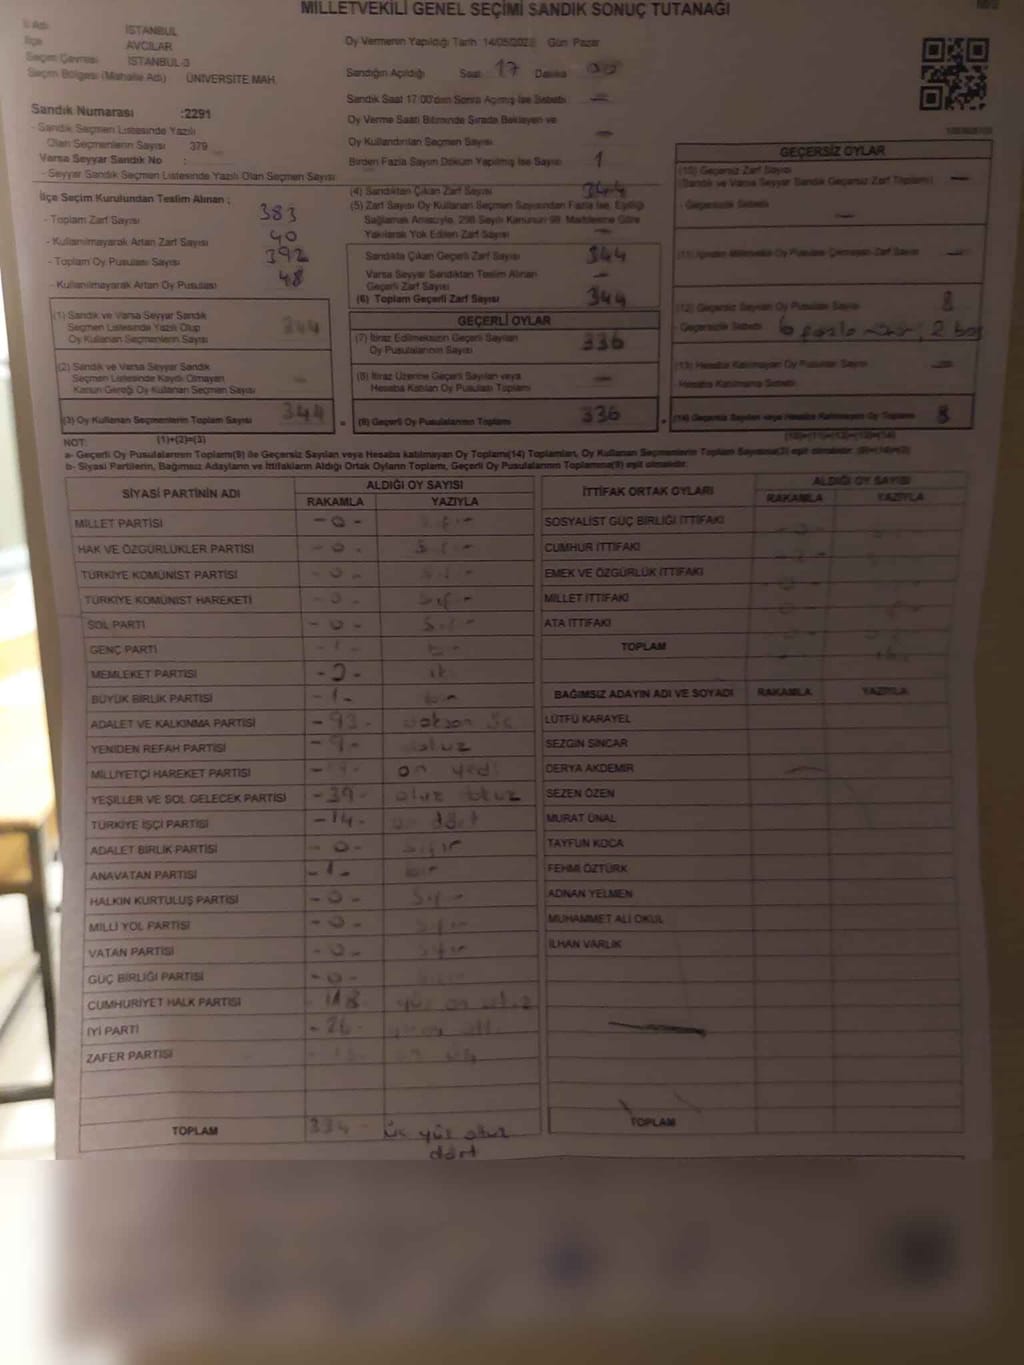 MİLLETVEKİLİ GENEL SEÇİMİ SANDIK SONUÇ TUTANAĞI
İl Adı İSTANBUL
İlçe AVCILAR
Seçim Çevresi İSTANBUL-3
Seçim Bölgesi (Mahalle Adı) ÜNİVERSİTE MAH.
Sandık Numarası :2291
- Sandık Seçmen Listesinde Yazılı
Olan Seçmenlerin Sayısı 379
Varsa Seyyar Sandık No :
- Seyyar Sandık Seçmen Listesinde Yazılı Olan Seçmen Sayısı
Oy Vermenin Yapıldığı Tarih :14/05/2023 Gün :Pazar
Sandığın Açıldığı Saat 17 Dakika 00
Sandık Saat 17:00'den Sonra Açılmış İse Sebebi : —
Oy Verme Saati Bitiminde Sırada Bekleyen ve
Oy Kullandırılan Seçmen Sayısı —
Birden Fazla Sayım Döküm Yapılmış İse Sayısı 1
İlçe Seçim Kurulundan Teslim Alınan ;
- Toplam Zarf Sayısı 383
- Kullanılmayarak Artan Zarf Sayısı 40
- Toplam Oy Pusulası Sayısı 392
- Kullanılmayarak Artan Oy Pusulası 48
(1) Sandık ve Varsa Seyyar Sandık
Seçmen Listesinde Yazılı Olup
Oy Kullanan Seçmenlerin Sayısı 344
(2) Sandık ve Varsa Seyyar Sandık
Seçmen Listesinde Kayıtlı Olmayan
Kanun Gereği Oy Kullanan Seçmen Sayısı —
(3) Oy Kullanan Seçmenlerin Toplam Sayısı 344
(4) Sandıktan Çıkan Zarf Sayısı 344
(5) Zarf Sayısı Oy Kullanan Seçmen Sayısından Fazla İse, Eşitliği
Sağlamak Amacıyla, 298 Sayılı Kanunun 98. Maddesine Göre
Yakılarak Yok Edilen Zarf Sayısı —
Sandıkta Çıkan Geçerli Zarf Sayısı 344
Varsa Seyyar Sandıktan Teslim Alınan
Geçerli Zarf Sayısı —
(6) Toplam Geçerli Zarf Sayısı 344
GEÇERLİ OYLAR
(7) İtiraz Edilmeksizin Geçerli Sayılan
Oy Pusulalarının Sayısı 336
(8) İtiraz Üzerine Geçerli Sayılan veya
Hesaba Katılan Oy Pusulası Toplamı —
(9) Geçerli Oy Pusulalarının Toplamı 336
GEÇERSİZ OYLAR
(10) Geçersiz Zarf Sayısı
(Sandık ve Varsa Seyyar Sandık Geçersiz Zarf Toplamı) —
- Geçersizlik Sebebi —
(11) İçinden Milletvekili Oy Pusulası Çıkmayan Zarf Sayısı —
(12) Geçersiz Sayılan Oy Pusulası Sayısı 8
- Geçersizlik Sebebi 6 fazla mühür, 2 boş
(13) Hesaba Katılmayan Oy Pusulası Sayısı —
- Hesaba Katılmama Sebebi
(14) Geçersiz Sayılan veya Hesaba Katılmayan Oy Toplamı 8
NOT: (1)+(2)=(3) (10)+(11)+(12)+(13)=(14)
a- Geçerli Oy Pusulalarının Toplamı(9) ile Geçersiz Sayılan veya Hesaba katılmayan Oy Toplamı(14) Toplamları, Oy Kullanan Seçmenlerin Toplam Sayısına(3) eşit olmalıdır. (9)+(14)=(3)
b- Siyasi Partilerin, Bağımsız Adayların ve İttifakların Aldığı Ortak Oyların Toplamı, Geçerli Oy Pusulalarının Toplamına(9) eşit olmalıdır.
SİYASİ PARTİNİN ADI ALDIĞI OY SAYISI
RAKAMLA YAZIYLA
MİLLET PARTİSİ -0- sıfır
HAK VE ÖZGÜRLÜKLER PARTİSİ -0- sıfır
TÜRKİYE KOMÜNİST PARTİSİ -0- sıfır
TÜRKİYE KOMÜNİST HAREKETİ -0- sıfır
SOL PARTİ -0- sıfır
GENÇ PARTİ -1- bir
MEMLEKET PARTİSİ
BÜYÜK BİRLİK PARTİSİ -1- bir
ADALET VE KALKINMA PARTİSİ -93- doksan üç
YENİDEN REFAH PARTİSİ -9- dokuz
MİLLİYETÇİ HAREKET PARTİSİ on yedi
YEŞİLLER VE SOL GELECEK PARTİSİ -39- otuz dokuz
TÜRKİYE İŞÇİ PARTİSİ -14- on dört
ADALET BİRLİK PARTİSİ -0- sıfır
ANAVATAN PARTİSİ -1- bir
HALKIN KURTULUŞ PARTİSİ -0- sıfır
MİLLİ YOL PARTİSİ -0- sıfır
VATAN PARTİSİ -0- sıfır
GÜÇ BİRLİĞİ PARTİSİ -0-
CUMHURİYET HALK PARTİSİ 118 yüz on sekiz
İYİ PARTİ -26- yirmi altı
ZAFER PARTİSİ
TOPLAM 334 üç yüz otuz
dört
İTTİFAK ORTAK OYLARI ALDIĞI OY SAYISI
RAKAMLA YAZIYLA
SOSYALİST GÜÇ BİRLİĞİ İTTİFAKI
CUMHUR İTTİFAKI
EMEK VE ÖZGÜRLÜK İTTİFAKI
MİLLET İTTİFAKI
ATA İTTİFAKI
TOPLAM
BAĞIMSIZ ADAYIN ADI VE SOYADI RAKAMLA YAZIYLA
LÜTFÜ KARAYEL
SEZGİN SİNCAR
DERYA AKDEMİR
SEZEN ÖZEN
MURAT ÜNAL
TAYFUN KOCA
FEHMİ ÖZTÜRK
ADNAN YELMEN
MUHAMMET ALİ OKUL
İLHAN VARLIK
TOPLAM